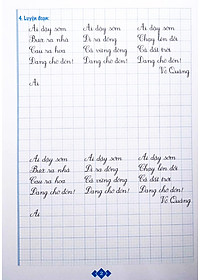 4. Luyện đoạn:
Ai dậy sớm
Bước ra nhà
Cau ra hoa
Đang chờ đón!
Ai dậy sớm
Đi ra đồng
Cả vừng đông
Đang chờ đón!
Ai dậy sớm
Chạy lên đồi
Cả đất trời
Đang chờ đón!
Võ Quảng
Ai
Ai dậy sớm
Bước ra nhà
Cau ra hoa
Đang chờ đón!
Ai dậy sớm
Đi ra đồng
Cả vừng đông
Đang chờ đón!
Ai dậy sớm
Chạy lên đồi
Cả đất trời
Đang chờ đón!
Võ Quảng
Ai